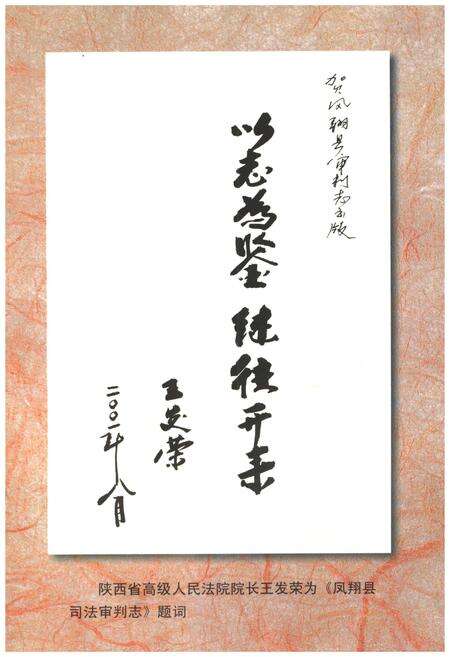 贺凤翔县审判志出版
以志为鉴 继往开来
王发荣
二〇〇一年八月
陕西省高级人民法院院长王发荣为《凤翔县
司法审判志》题词